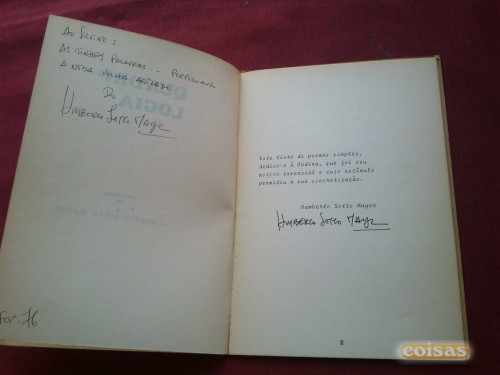 Ao Elcino:
As minhas palavras - perpetuando
a nossa velha amizade
Do
Humberto Sotto Mayor
Fev. 76
LOGIA
Este livro de poemas simples,
dedico-o à Ondina, que foi seu
motivo essencial e cujo estímulo
permitiu a sua concretização.
Humberto Sotto Mayor
Humberto Sotto Mayor
2
coisas